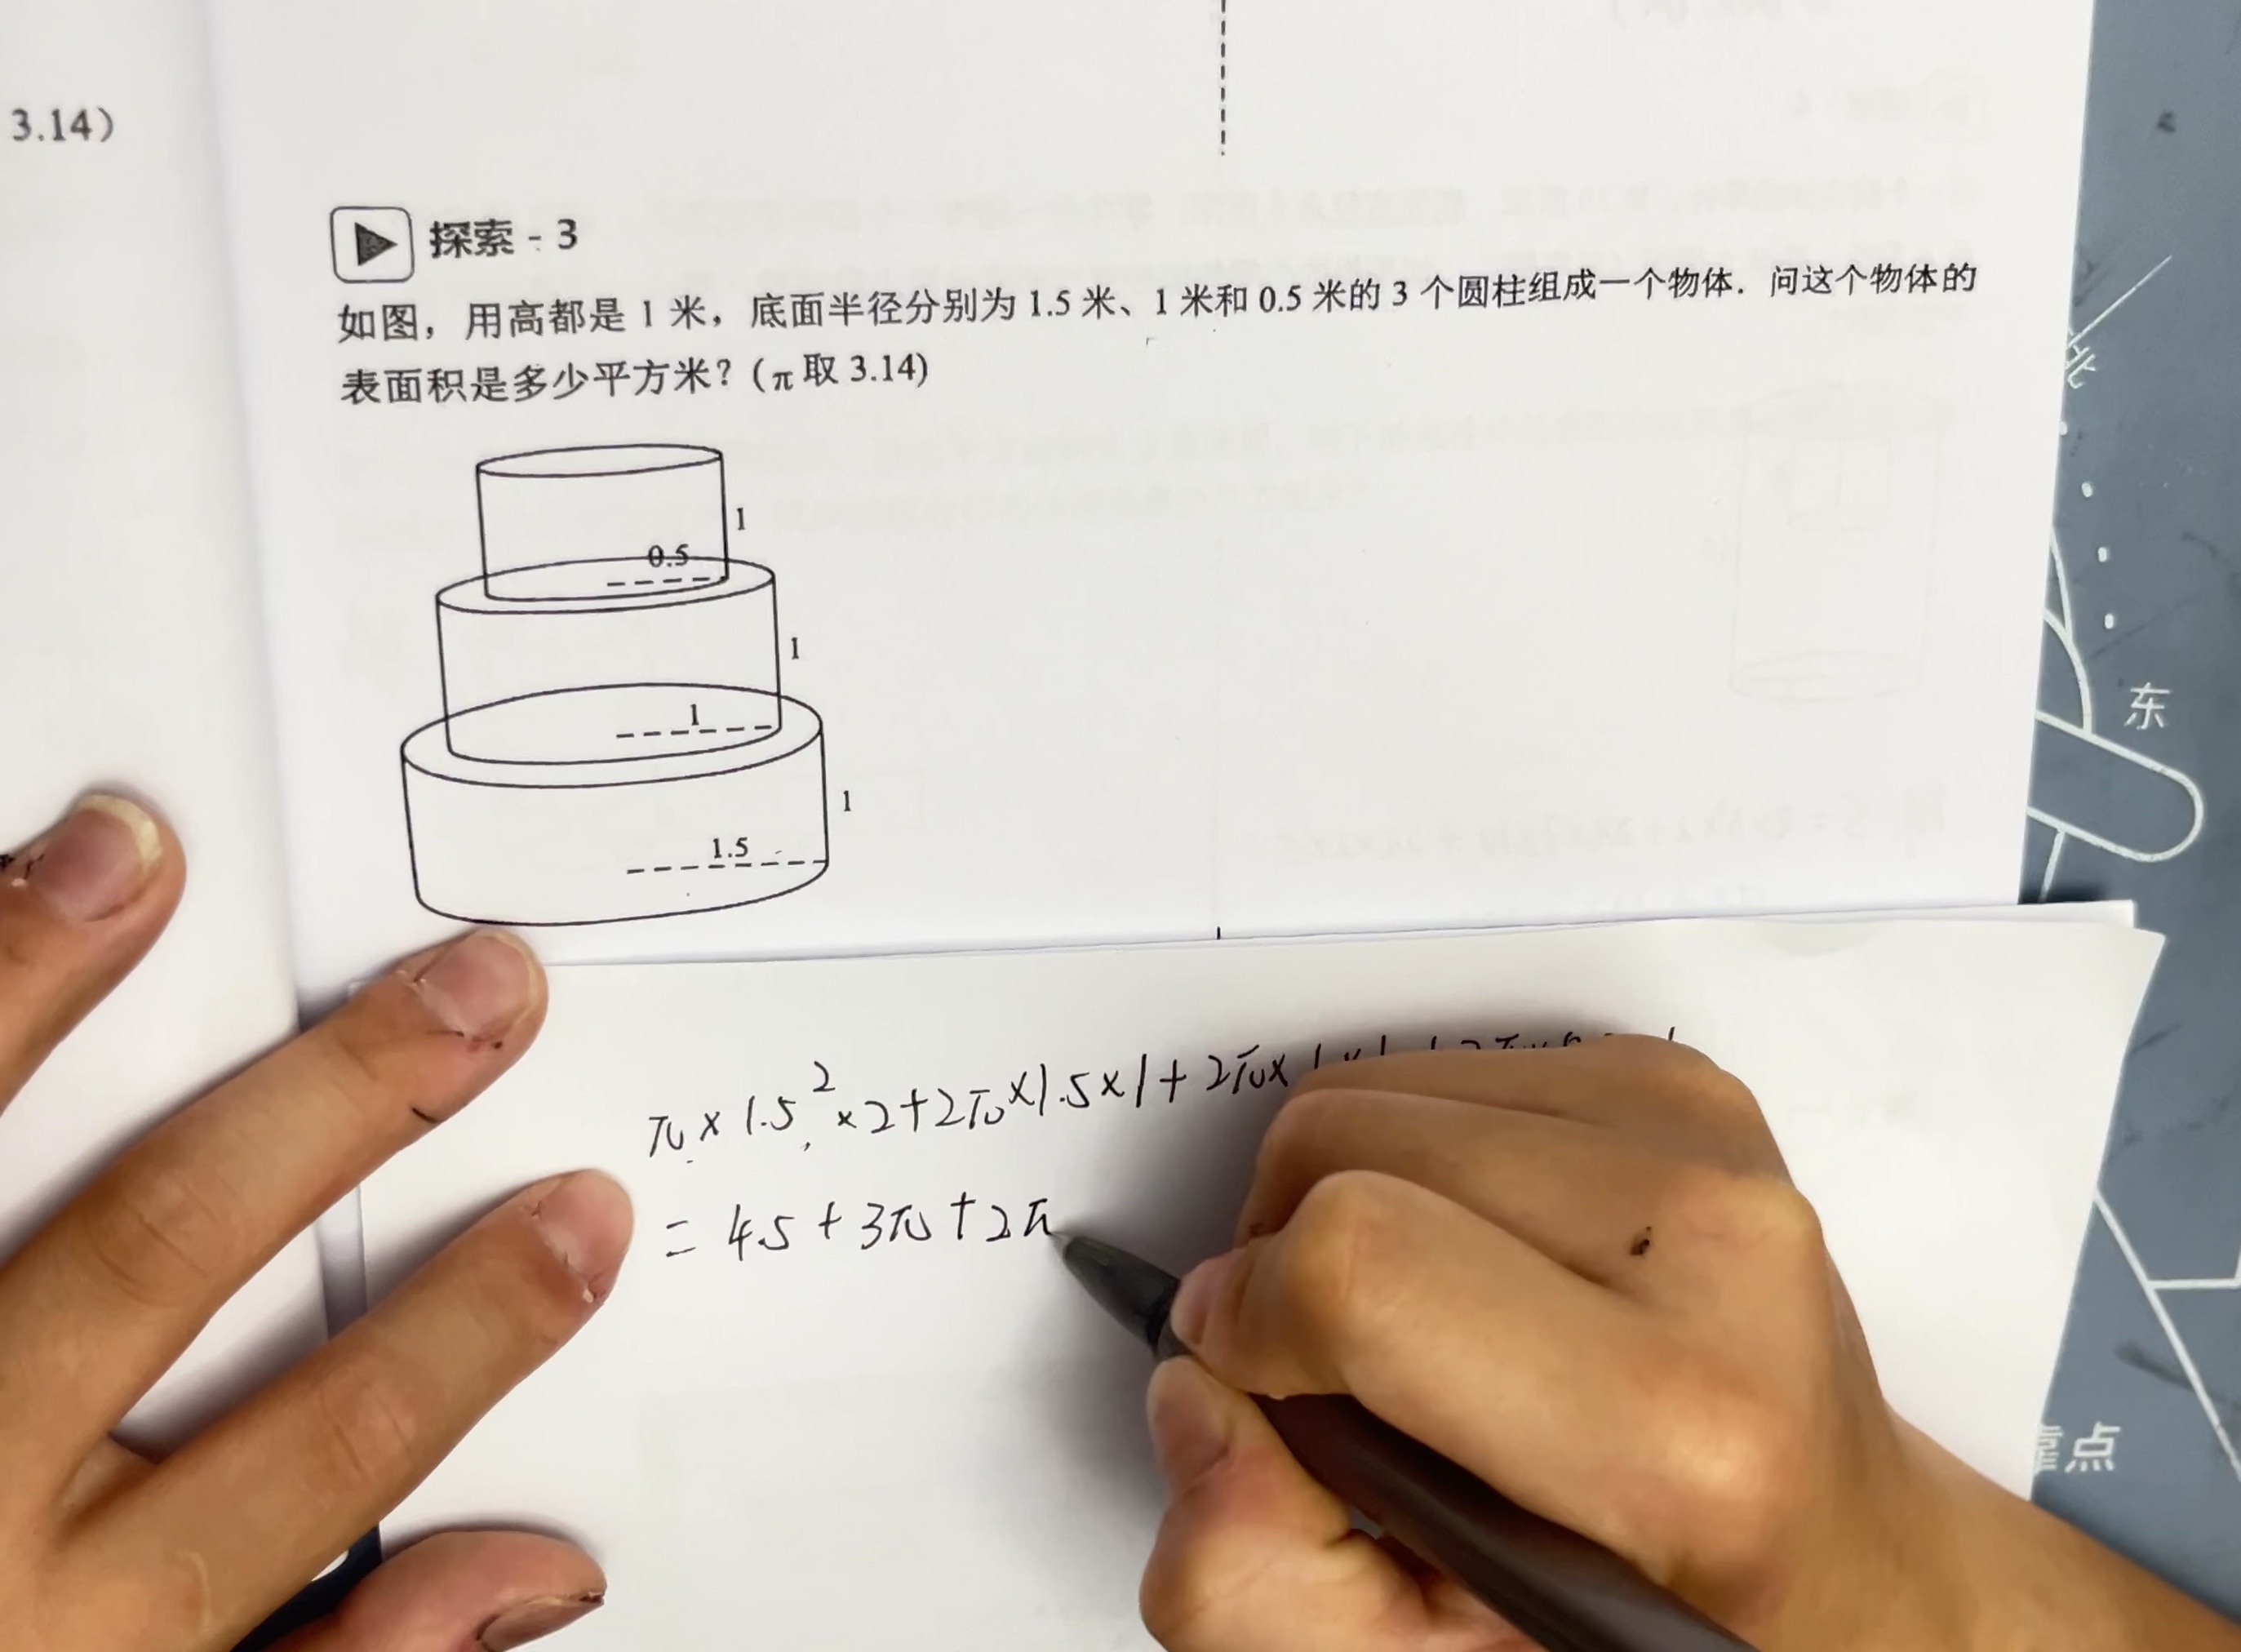 3.14)
探索 - 3
如图，用高都是 1 米，底面半径分别为 1.5 米、1 米和 0.5 米的 3 个圆柱组成一个物体．问这个物体的
表面积是多少平方米？(π 取 3.14)
1
0.5
1
1
1
1.5
北
东
靠点
π × 1.5² × 2 + 2π × 1.5 × 1 + 2π ×
= 4.5 + 3π + 2π